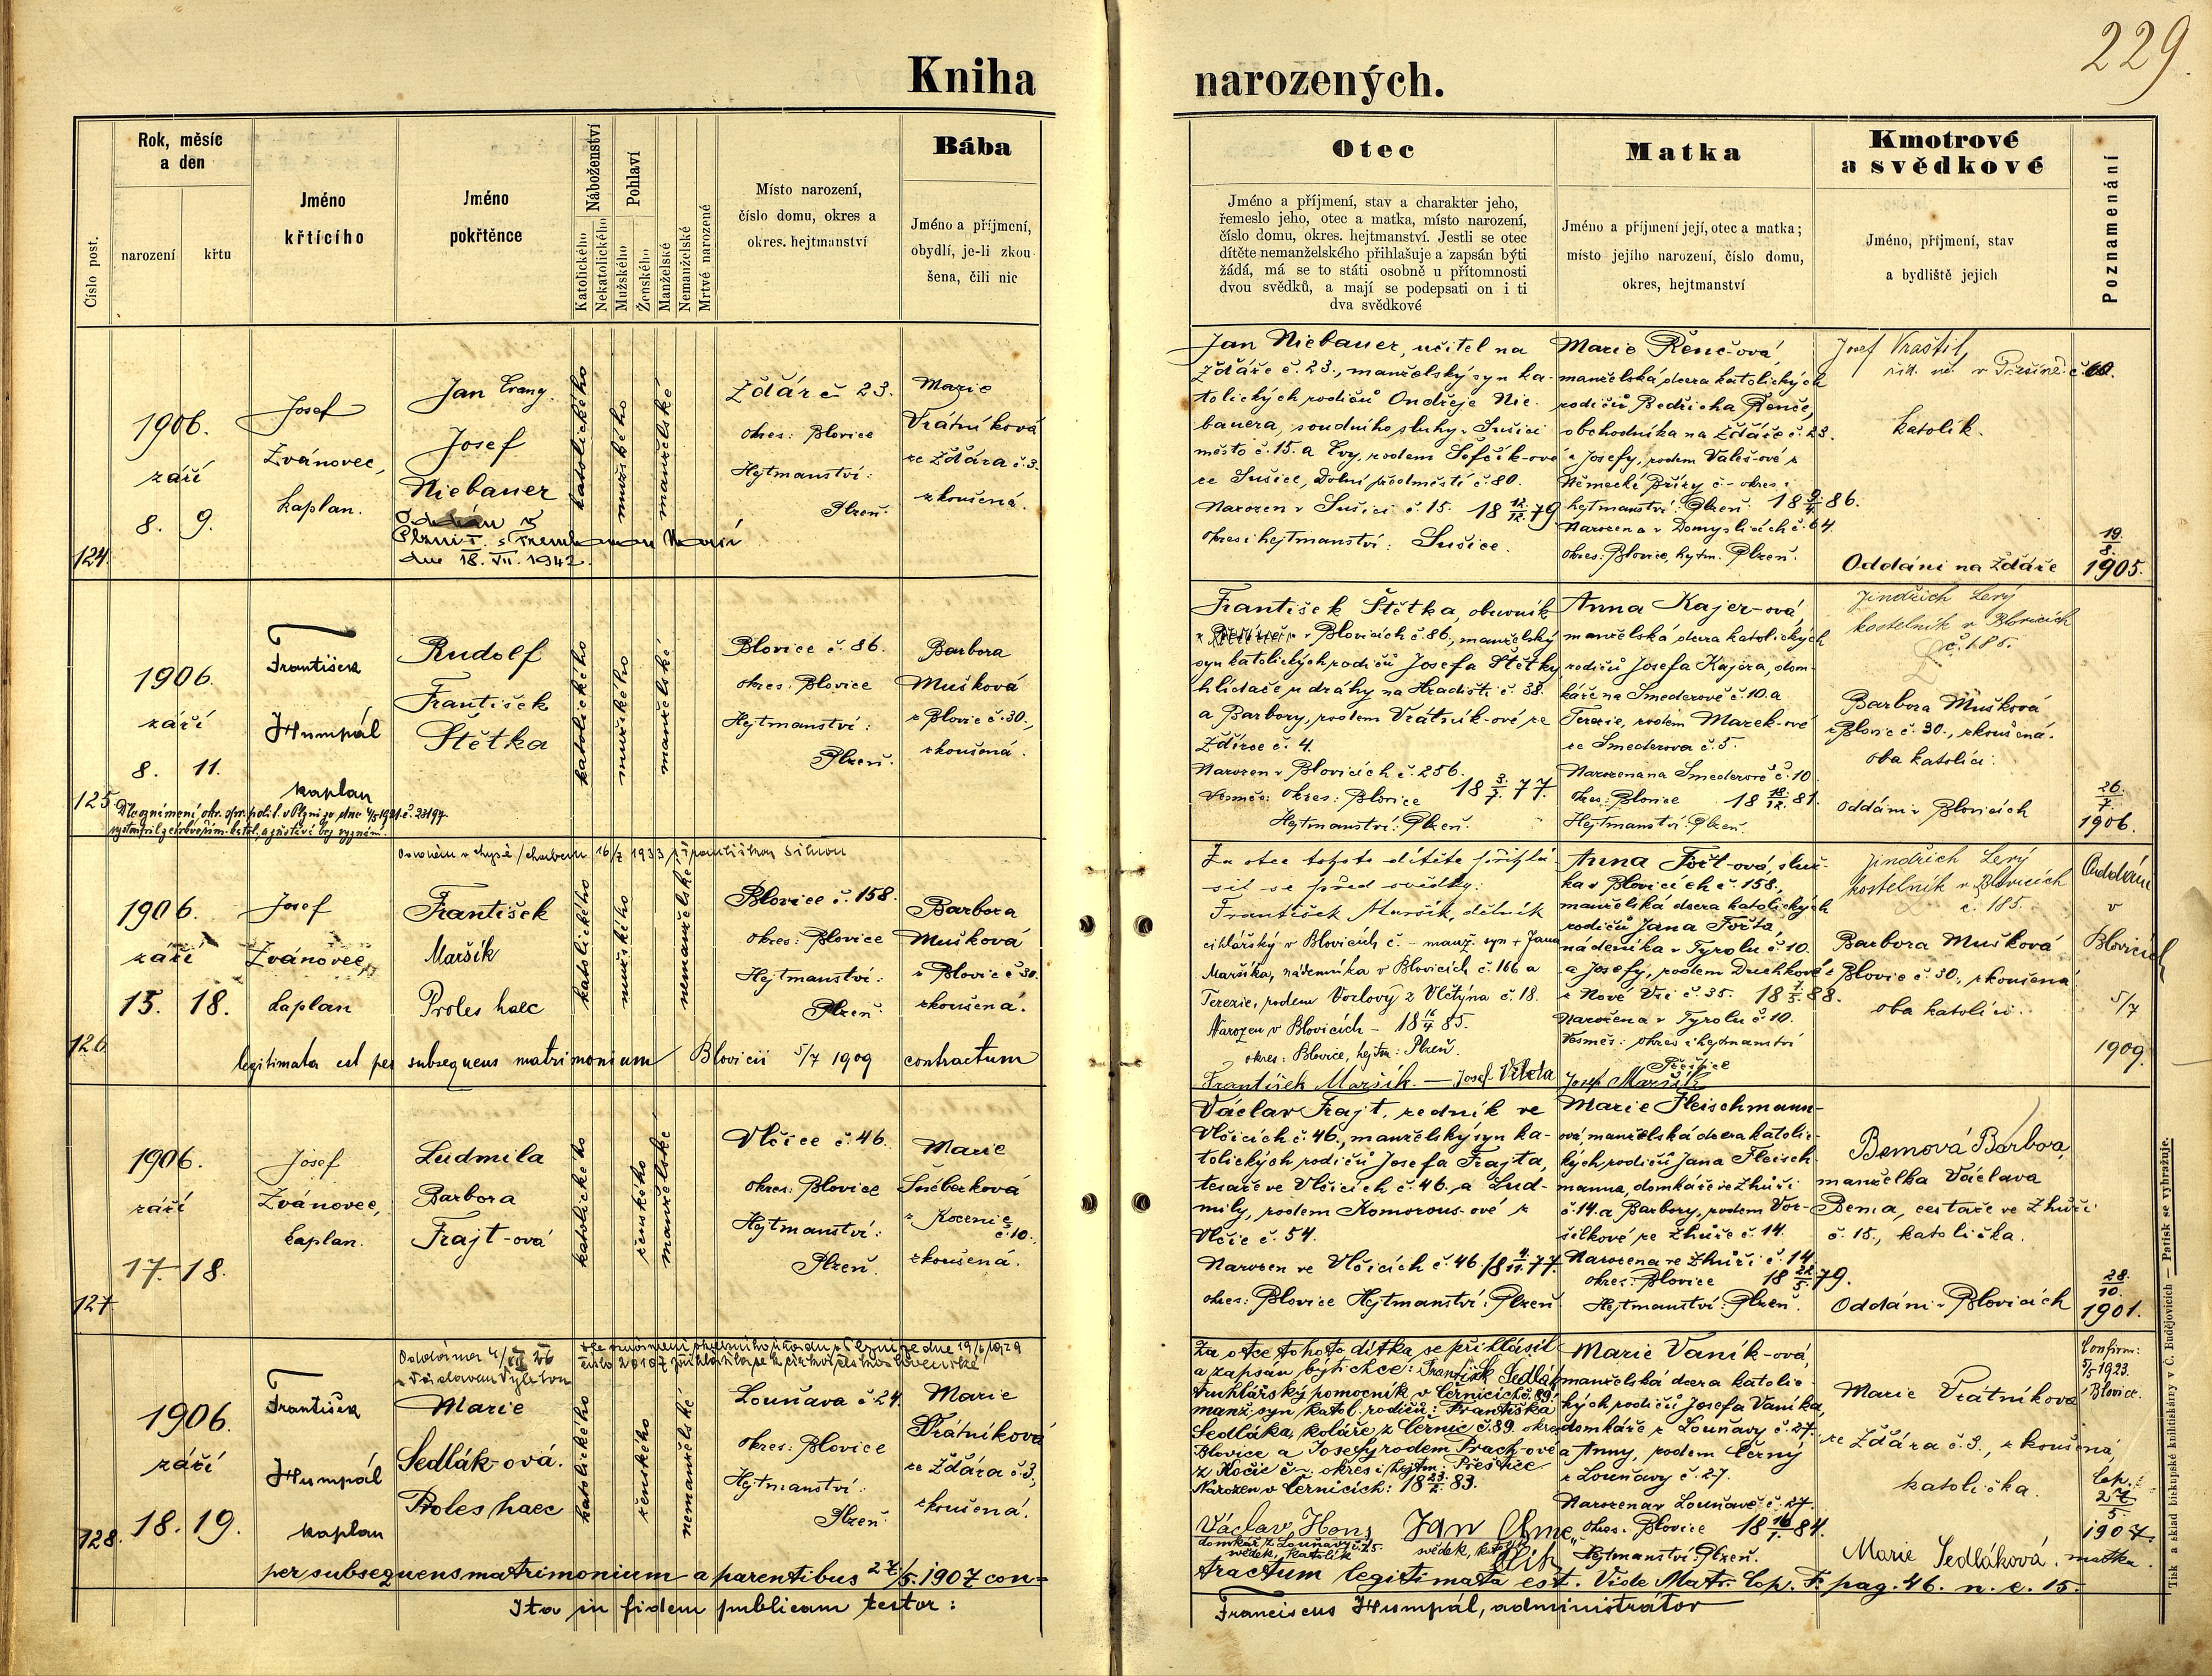 229
Kniha narozených.
Číslo post.
Rok, měsíc
a den
narození
křtu
Jméno
křtícího
Jméno
pokřtěnce
Náboženství
Katolického
Nekatolického
Pohlaví
Mužského
Ženského
Manželské
Nemanželské
Mrtvé narozené
Místo narození,
číslo domu, okres a
okres. hejtmanství
Bába
Jméno a příjmení,
obydlí, je-li zkou
šena, čili nic
Otec
Jméno a příjmení, stav a charakter jeho,
řemeslo jeho, otec a matka, místo narození,
číslo domu, okres. hejtmanství. Jestli se otec
dítěte nemanželského přihlašuje a zapsán býti
žádá, má se to státi osobně u přítomnosti
dvou svědků, a mají se podepsati on i ti
dva svědkové
Matka
Jméno a příjmení její, otec a matka;
místo jejího narození, číslo domu,
okres, hejtmanství
Kmotrové
a svědkové
Jméno, příjmení, stav
a bydliště jejich
Poznamenání
124.
1906.
září
8. 9.
Josef
Zvánovec,
kaplan.
Jan Evang.
Josef
Niebauer
Plzni I. s
dne 18. VII. 1942.
katolického
mužského
manželské
Žďár č 23.
okres: Blovice
Hejtmanství:
Plzeň.
Marie
Vrátníková
ze Žďára č. 3.
zkoušená.
Jan Niebauer, učitel na
Žďáře č. 23., manželský syn ka-
tolických rodičů Ondřeje Nie-
bauera, soudního sluhy v Sušici
město č. 15. a Evy, rodem Šefčík-ové
ze Sušice, Dolní předměstí č. 80.
Narozen v Sušici č. 15. 18 12/12. 79
Okres i hejtmanství: Sušice.
Marie Řenč-ová,
manželská dcera katolických
rodičů Bedřicha Řenče,
obchodníka na Žďáře č. 23.
a Josefy, rodem Valeš-ové z
Německé Břízy č – okres i
hejtmanství: Plzeň. 18 9/4. 86.
Narozena v Domyslicích č. 64
okres: Blovice, hejtm. Plzeň.
Josef Vraštil,
katolík.
Oddáni na Žďáře
19/8.
1905.
125
1906.
září
8. 11.
František
Humpál
kaplan
Rudolf
František
Štětka
katolického
mužského
manželské
Blovice č. 86.
okres: Blovice
Hejtmanství:
Plzeň.
Barbora
Mušková
z Blovic č. 30.,
zkoušená.
František Štětka, obuvník
v Blovicích č. 86., manželský
syn katolických rodičů Josefa Štětky,
hlídače u dráhy na Hradišti č. 38.
a Barbory, rodem Vrátník-ové ze
Ždírce č. 4.
Narozen v Blovicích č. 256.
Vesměs: okres: Blovice 18 3/7. 77.
Hejtmanství: Plzeň.
Anna Kajer-ová,
manželská dcera katolických
rodičů Josefa Kajera, dom-
káře na Smederově č. 10. a
Terezie, rodem Marek-ové
ze Smederova č. 5.
Narozena na Smederově č. 10.
okres: Blovice 18 18/12. 81.
Hejtmanství: Plzeň.
Jindřich Levý
kostelník v Blovicích
č. 185.
Barbora Mušková
z Blovic č. 30., zkoušená.
oba katolíci.
oddáni v Blovicích
26/7
1906.
126
1906.
září
15. 18.
Josef
Zvánovec,
kaplan
František
Maršík
Proles haec
katolického
mužského
nemanželské
Blovice č. 158.
okres: Blovice
Hejtmanství:
Plzeň.
Barbora
Mušková
z Blovic č 30.
zkoušená.
legitimata est per subsequens matrimonium Blovicii 5/7 1909 contractum
Za otce tohoto dítěte přihlá-
sil se před svědky:
František Maršík, dělník
cihlářský v Blovicích č. – manž. syn + Jana
Maršíka, nádenníka v Blovicích č. 166 a
Terezie, rodem Vozlový z Vlčtýna č. 18.
Narozen v Blovicích – 18 16/4 85.
okres: Blovice, hejtm: Plzeň.
František Maršík. — Josef Josef Maršík
Anna Fořt-ová, služ-
ka v Blovicích č. 158.,
manželská dcera katolických
rodičů Jana Fořta,
nádeníka v Tyrolu č. 10.
a Josefy, rodem Duchkové
z Nové Vsi č. 35. 18 7/5. 88.
Narozena v Tyrolu č. 10.
Vesměs: okres i hejtmanství
Přeštice
Jindřich Levý
kostelník v Blovicích
č. 185.
Barbora Mušková
z Blovic č. 30., zkoušená
oba katolíci.
Oddáni
v
Blovicích
5/7
1909.
127
1906.
září
17. 18.
Josef
Zvánovec,
kaplan.
Ludmila
Barbora
Frajt-ová
katolického
ženského
manželské
Vlčice č. 46.
okres: Blovice
Hejtmanství:
Plzeň.
Marie
Sněberková
z Kocenic
č. 10.,
zkoušená.
Václav Frajt,ředník ve
Vlčicích č. 46., manželský syn ka-
tolických rodičů Josefa Frajta,
tesaře ve Vlčicích č. 46., a Lud-
mily, rodem Komorous-ové z
Vlčic č. 54.
Narozen ve Vlčicích č. 46 18 4/11. 77.
okres: Blovice Hejtmanství: Plzeň
Marie Fleischmann-
ová, manželská dcera katolic-
kých rodičů Jana Fleisch-
manna, domkáře ve Zhůři
č. 14. a Barbory, rodem Vor-
šilkové ze Zhůře č. 14.
Narozena ve Zhůři č. 14
okres: Blovice 18 22/5. 79.
Hejtmanství: Plzeň.
Bemová Barbora,
manželka Václava
Bema, cestáře ve Zhůři
č. 15., katolička.
Oddáni v Blovicích
28./10.
1901.
128.
1906.
září
18. 19.
František
Humpál
kaplan
Marie
Sedlák-ová.
Proles haec
katolického
ženského
nemanželské
Louňava č 24.
okres: Blovice
Hejtmanství:
Plzeň.
Marie
Vrátníková
ze Žďára č. 3,
zkoušená.
Za otce tohoto dítka se přihlásil
a zapsán býti chce: František Sedlák
truhlářský pomocník v Černicích č. 89.
manž. syn katol. rodičů: Františka
Sedláka, koláře z Černic č. 89. okres
Blovice a Josefy rodem Prach-ové
z Kočic č – okres i hejtm: Přeštice
Narozen v Černicích: 18 23/2. 83.
Václav Hons
domkář z Louňavy č. 25.
svědek, katolík
Marie Vaník-ová,
manželská dcera katolic-
kých rodičů Josefa Vaníka,
domkáře z Louňavy č. 27.
a Anny, rodem Černý
z Louňavy č. 27.
Narozena v Louňavě č. 27.
okres: Blovice 18 16/1. 84.
Hejtmanství: Plzeň.
Marie Vrátníková
ze Žďára č. 3., zkoušená
katolička.
Marie Sedláková. matka.
Confirm:
5/5 1923.
Blovice.
Cop.:
27/5.
1907
per subsequens matrimonium a parentibus 27/5. 1907 con=
tractum legitimata est. Vide Matr. Cop. F. pag. 46. n. c. 15.
Ita in fidem publicam testor:
Franciscus Humpál, administrátor
Tisk a sklad biskupské knihtiskárny v Č. Budějovicích — Patisk se vyhražuje.